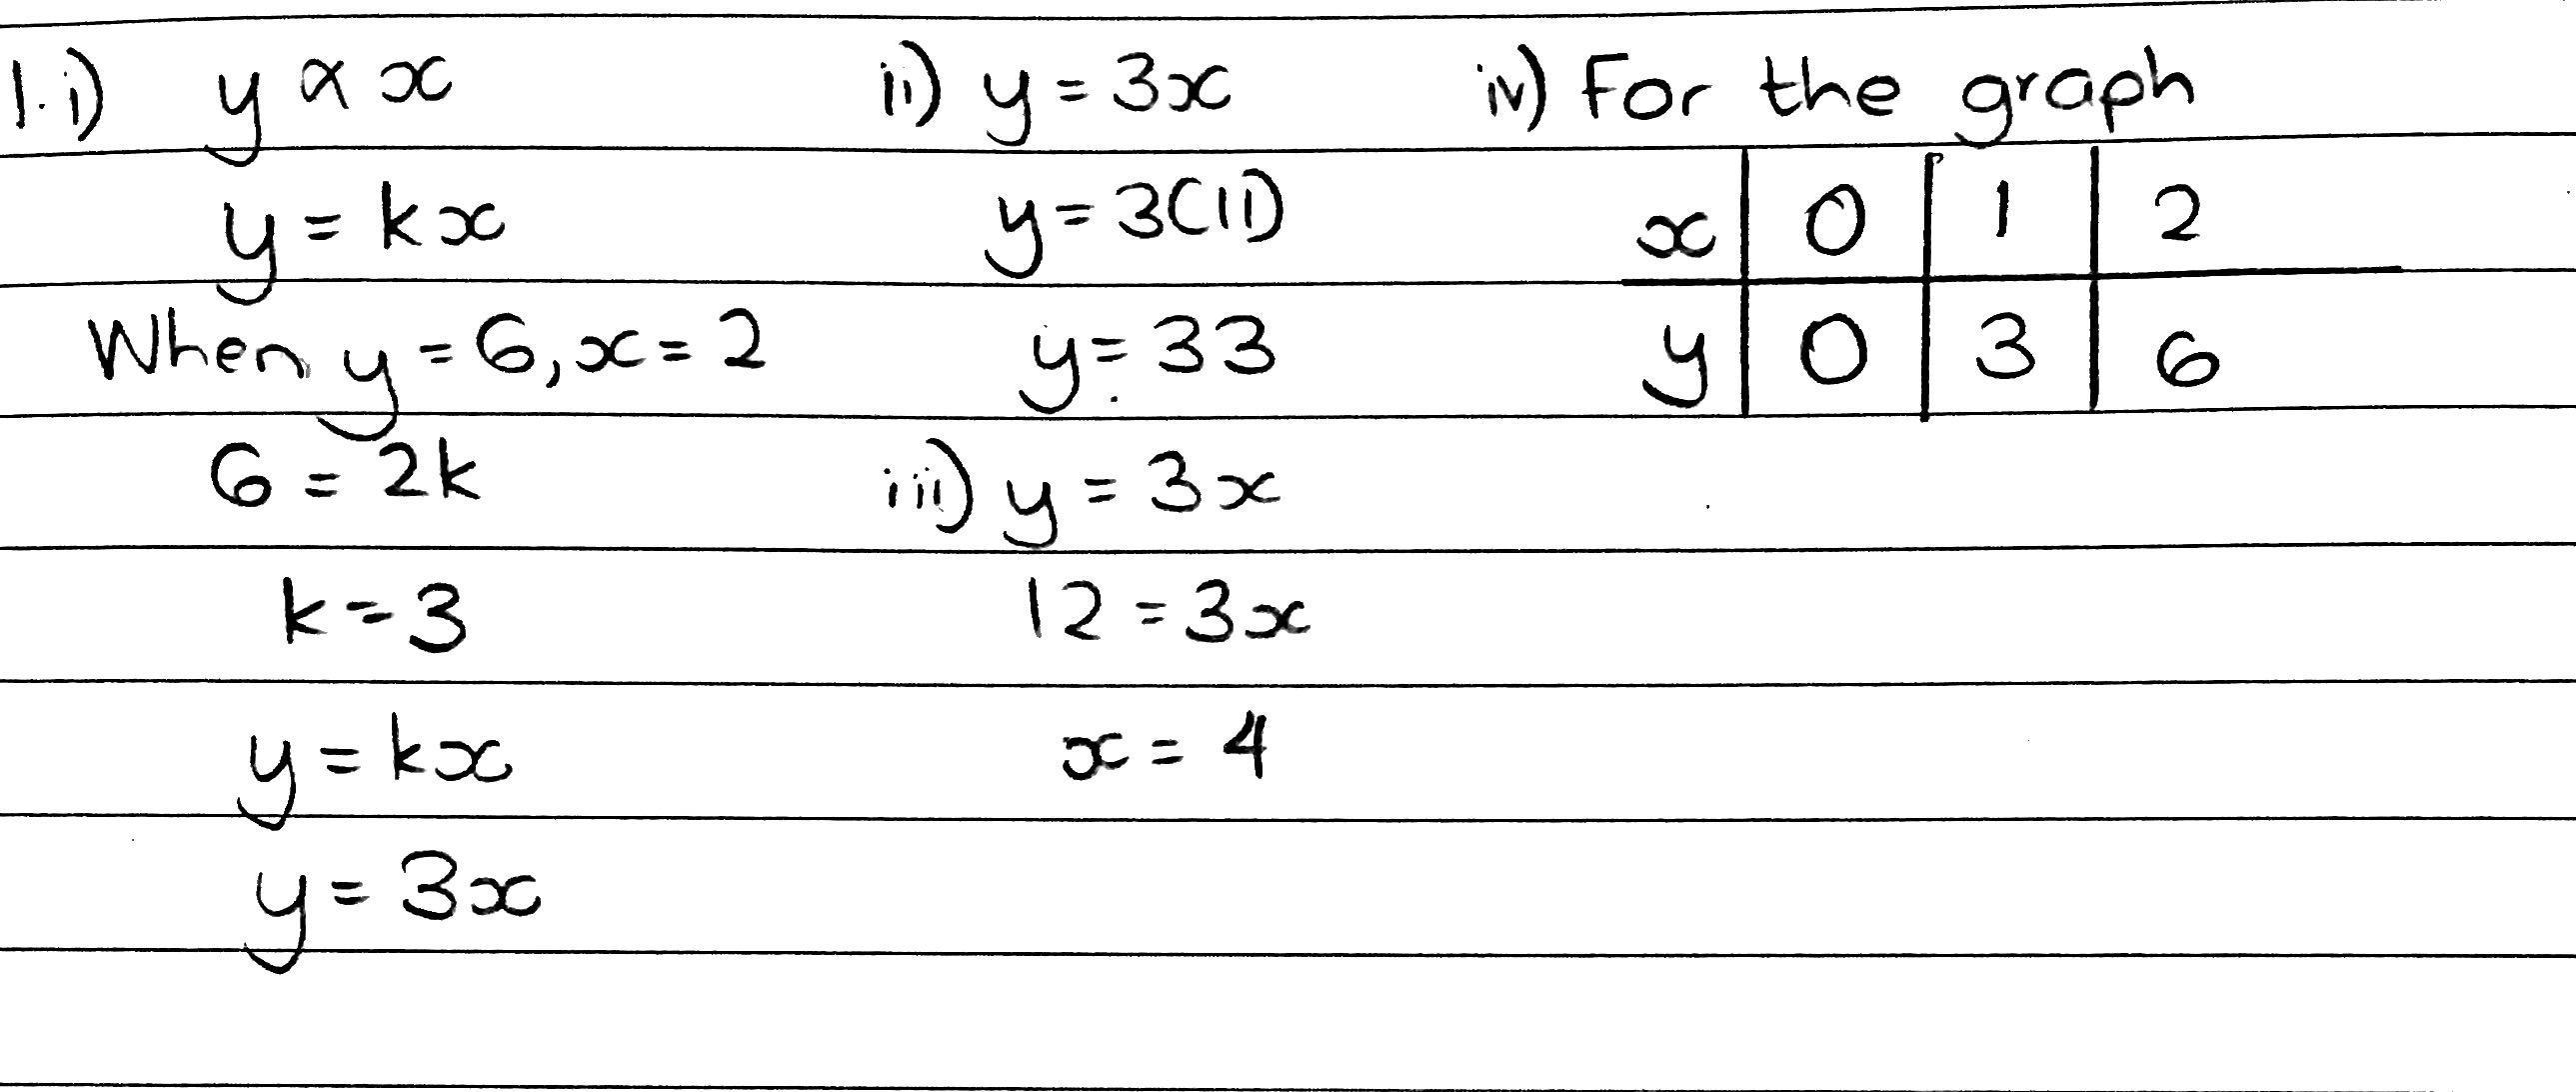 1.i) y ∝ x
y = kx
When y = 6, x = 2
6 = 2k
k = 3
y = kx
y = 3x
ii) y = 3x
y = 3(11)
y = 33
iii) y = 3x
12 = 3x
x = 4
iv) For the graph
x | 0 | 1 | 2
y | 0 | 3 | 6